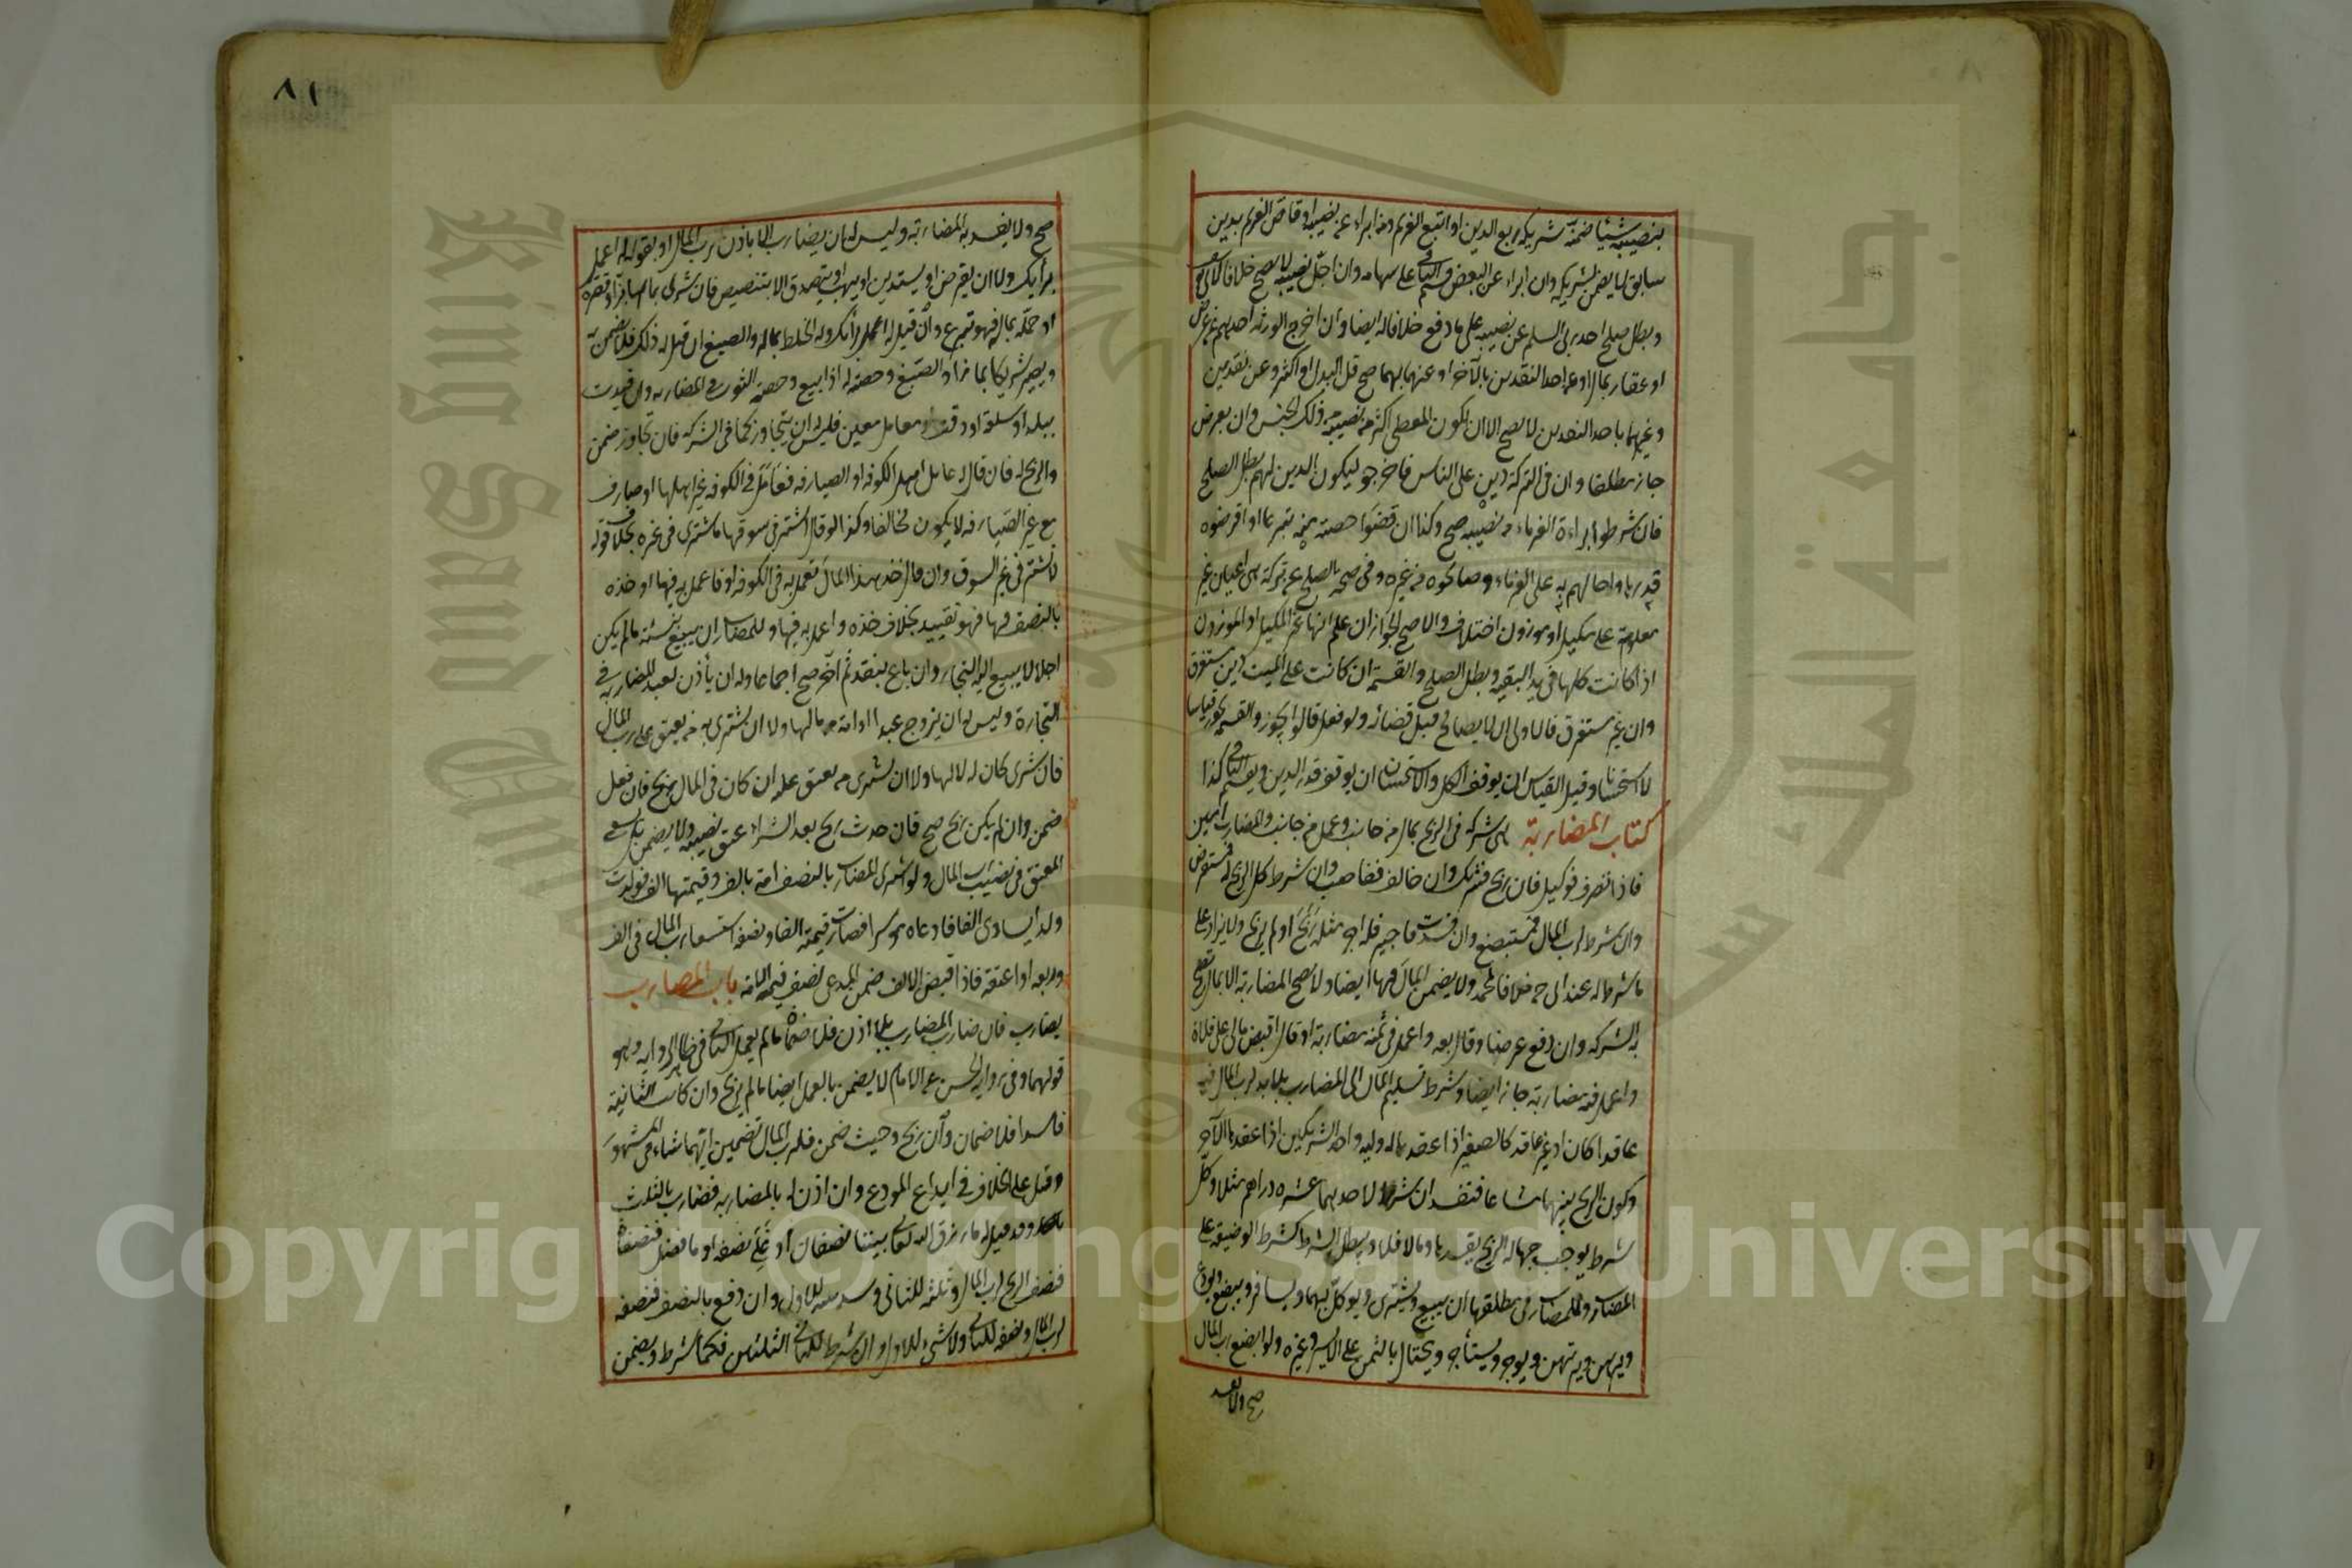 بنصيبه شيئا ضمنه شريكه ربع الدين او اتبع الغريم ومن ابراء عن نصيبه او قاص الغريم بدين
سابق لا يضمن لشريكه وان ابراء عن البعض قسم الباقي على سهامه وان اجل نصيبه لا يصح خلافا لابي يوسف
وبطل صلح احد ربي السلم عن نصيبه على ما دفع خلافا له ايضا وان اخرج الورثه احدهم عن عرض
او عقار بمال او عن احد النقدين بالآخر او عنهما بهما صح قل البدل او اكثر وعن نقدين
وغيرهما باحد النقدين لا يصح الا ان يكون المعطى اكثر من نصيبه من ذلك الجنس وان بعرض
جاز مطلقا وان في التركة دين على الناس فاخرجوه ليكون الدين لهم بطل الصلح
فان شرطوا براءة الغرماء من نصيبه صح وكذا ان قضوا حصته منه تبرعا او اقرضوه
قدرها واحالهم به على الغرماء وصالحوه من غيره وفي صحة الصلح عن تركة هي اعيان غير
معلومة على مكيل او موزون اختلاف والاصح الجواز ان علم انها غير المكيل او الموزون
اذا كانت كلها في يد البقية وبطل الصلح والقسمة ان كانت على الميت دين مستغرق
وان غير مستغرق فالاولى ان لا يصالح قبل قضائه ولو فعل قالوا يجوز والقسمة تجوز قياسا
لا استحسانا وقيل القياس ان يوقف الكل والاستحسان ان يوقف قدر الدين ويقسم الباقي كذا
كتاب المضاربة هي شركة في الربح بمال من جانب وعمل من جانب والمضارب امين
فاذا تصرف فوكيل فان ربح فشريك وان خالف فغاصب وان شرط كل الربح له فمستقرض
وان شرط لرب المال فمستبضع وان فسدت فاجير فله اجر مثله ربح او لم يربح ولا يزاد على
ما شرط له عند ابي خلافا لمحمد ولا يضمن المال فيها ايضا ولا تصح المضاربة الا بمال تصح
به الشركة وان دفع عرضا وقال بعه واعمل في ثمنه مضاربة او قال اقبض مالي على فلان
واعمل فيه مضاربة جاز ايضا وشرط تسليم المال الى المضارب بلا يد لرب المال فيه
عاقدا كان او غير عاقد كالصغير اذا عقد ماله وليه واحد الشريكين اذا عقد مع الآخر
وكون الربح بينهما مشاعا فتفسد ان شرط لاحدهما عشره دراهم مثلا وكل
شرط يوجب جهالة الربح يفسدها وما لا فلا ويبطل الشرط كشرط الوضيعة على
المضارب وللمضارب في مطلقها ان يبيع ويشترى ويوكل بهما ويسافر ويبضع ويودع
ويرهن ويرتهن ويوجر ويستأجر ويحتال بالثمن على الايسر وغيره ولو ابضع رب المال
صح ولا تفسد
٨١
صح ولا يفسد به المضاربة وليس له ان يضارب الا باذن رب المال او بقوله له اعمل
برأيك ولا ان يقرض او يستدين او يهب او يتصدق الا بتنصيص فان شرى بمالها بزا وقصره
او حمله بماله فهو تبرع وان قيل له اعمل برأيك وله الخلط بماله والصبغ ان قيل له ذلك فلا يضمن به
ويصير شريكا بما زاد الصبغ وحصته له اذا بيع وحصة الثوب في المضاربه وان قيدت
ببلد او سلعة او وقت او معامل معين فليس له ان يتجاوز كما في الشركه فان تجاوز ضمن
والربح له فان قال له عامل اهل الكوفه او الصيارفه فعامل في الكوفه غير اهلها او صارف
مع غير الصيارفه لا يكون مخالفا وكذا لو قال اشتر في سوقها فاشترى في غيره بخلاف قوله
لا تشتر في غير السوق وان قال خذ هذا المال تعمل به في الكوفه او فاعمل به فيها او خذه
بالنصف فيها فهو تقييد بخلاف خذه واعمل به فيها وللمضارب ان يبيع بنسئة ما لم يكن
اجلا لا يبيع اليه التجار وان باع بنقد ثم آخر صح اجماعا وله ان يأذن لعبد المضاربه في
التجارة وليس له ان يزوج عبدا او امة من مالها ولا ان يشترى به من يعتق على رب المال
فان شرى كان له لا لها ولا ان يشترى من يعتق عليه ان كان في المال ربح فان فعل
ضمن وان لم يكن ربح صح فان حدث ربح بعد الشراء عتق نصيبه ولا يضمن بل يسعى
المعتق في نصيب رب المال ولو اشترى المضارب بالنصف امة بالف وقيمتها الف فولدت
ولدا يساوى الفا فادعاه موسرا فصارت قيمته الفا ونصفه استسعاه رب المال في الف
وربعه او اعتقه فاذا قبض الالف ضمن المدعى نصف قيمة الامة باب المضارب
يضارب فان ضارب المضارب بلا اذن فلا ضمان ما لم يعمل الثاني في ظاهر الروايه وهو
قولهما وفي رواية الحسن عن الامام لا يضمن بالعمل ايضا ما لم يربح وان كانت الثانية
فاسدا فلا ضمان وان ربح وحيث ضمن فلرب المال تضمين ايهما شاء في المشهور
وقيل على الخلاف في ايداع المودع وان اذن له بالمضاربه فضارب بالثلث
وقد قيل له ما رزق الله تعالى بيننا نصفان او فلي نصفه او ما فضل فنصفان
فنصف الربح لرب المال وثلثه للثاني وسدسه للاول وان دفع بالنصف فنصفه
لرب المال ونصفه للثاني ولا شيء للاول وان شرط للثاني الثلثين فكما شرط ويضمن
Copyright © King Saud University